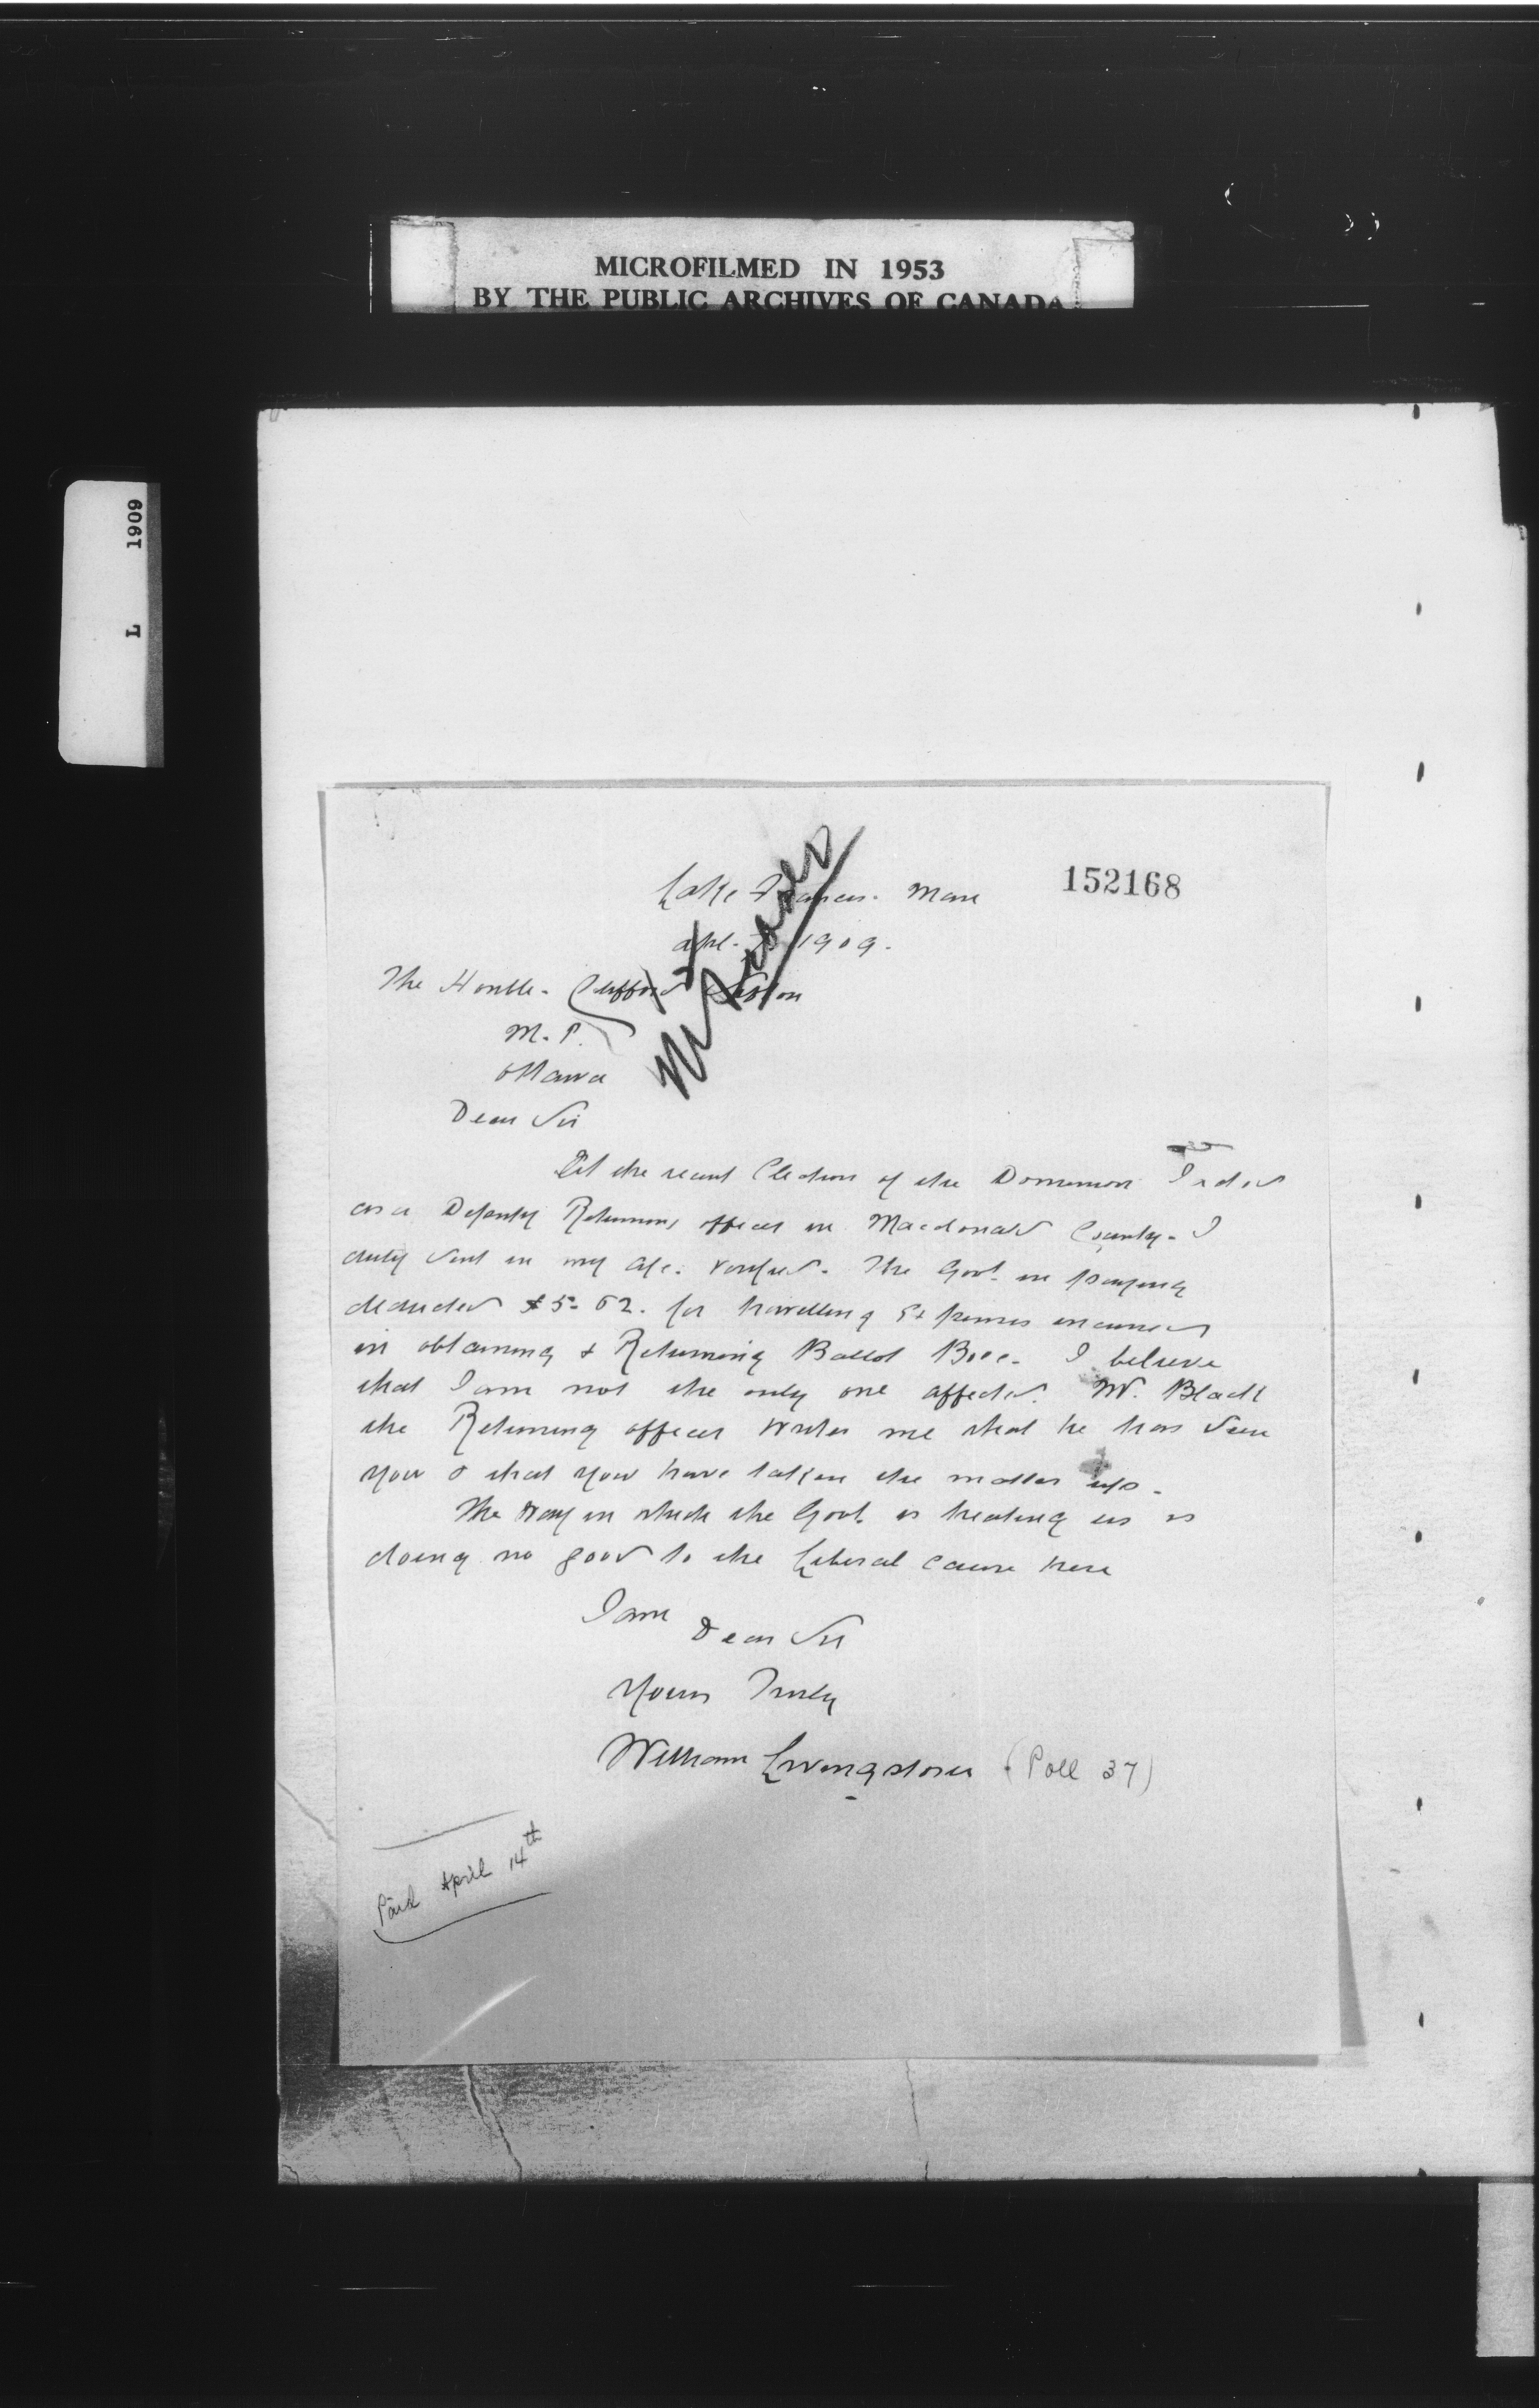 MICROFILMED IN 1953
BY THE PUBLIC ARCHIVES OF CANADA
L 1909
152168
Lake Francis. Man
Apl. 1909.
The Honble. Clifford Sifton
M. P.
Ottawa
Dear Sir
At the recent Election of the Dominion I acted
as a Deputy Returning officer in Macdonald County. I
duly sent in my a/c. The Govt. in paying
deducted $5.62. for travelling Expenses incurred
in obtaining & Returning Ballot Box. I believe
that I am not the only one affected. Mr. Black
the Returning officer writes me that he has seen
you & that you have taken the matter up.
The way in which the Govt. is treating us is
doing no good to the Liberal cause here
I am
Dear Sir
Yours Truly
William Livingstone (Poll 37)
Paid April 14th